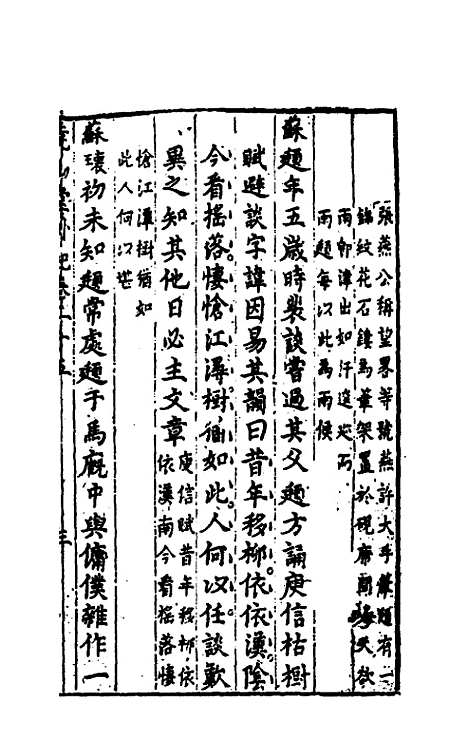 張燕公稱望畧等號燕許大手蘇頲有一
錦紋花石鏤為筆架置於硯席間每天欲
雨即津出如汗逡巡而
雨頲每以此為雨候
蘇頲年五歲時裴談嘗過其父頲方誦庾信枯樹
賦避談字諱因易其韻曰昔年移柳依依漢陰
今看摇落悽愴江潯樹猶如此人何以任談歎
異之知其他日必主文章
庾信賦昔年移柳依
依漢南今看摇落悽
愴江潭樹猶如
此人何以堪
蘇瓌初未知頲常處頲于馬廐中與傭僕雜作一
堯山堂外紀卷二十五
三